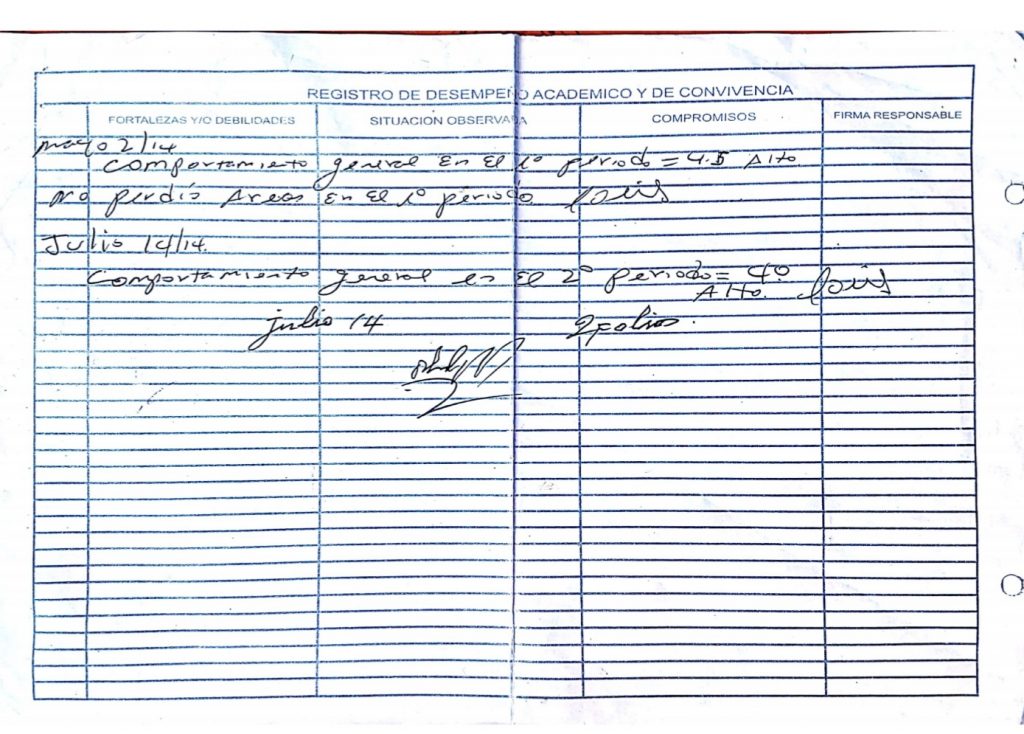 REGISTRO DE DESEMPEÑO ACADEMICO Y DE CONVIVENCIA
FORTALEZAS Y/O DEBILIDADES SITUACION OBSERVADA COMPROMISOS FIRMA RESPONSABLE
mayo 2/14
comportamiento general En El 1º periodo = 4.5 Alto.
No perdió Areas En El 1º periodo
Julio 14/14.
Comportamiento general en el 2º periodo = 4º
Alto.
julio 14 2 folios.